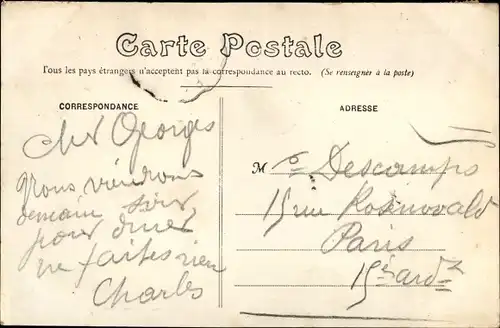 Carte Postale
Tous les pays étrangers n'acceptent pas la correspondance au recto. (Se renseigner à la poste)
CORRESPONDANCE
ADRESSE
Cher Georges
Nous viendrons
demain soir
pour diner
ne faites rien
Charles
M Descamps
15 rue Rosenwald
Paris
15è ardt